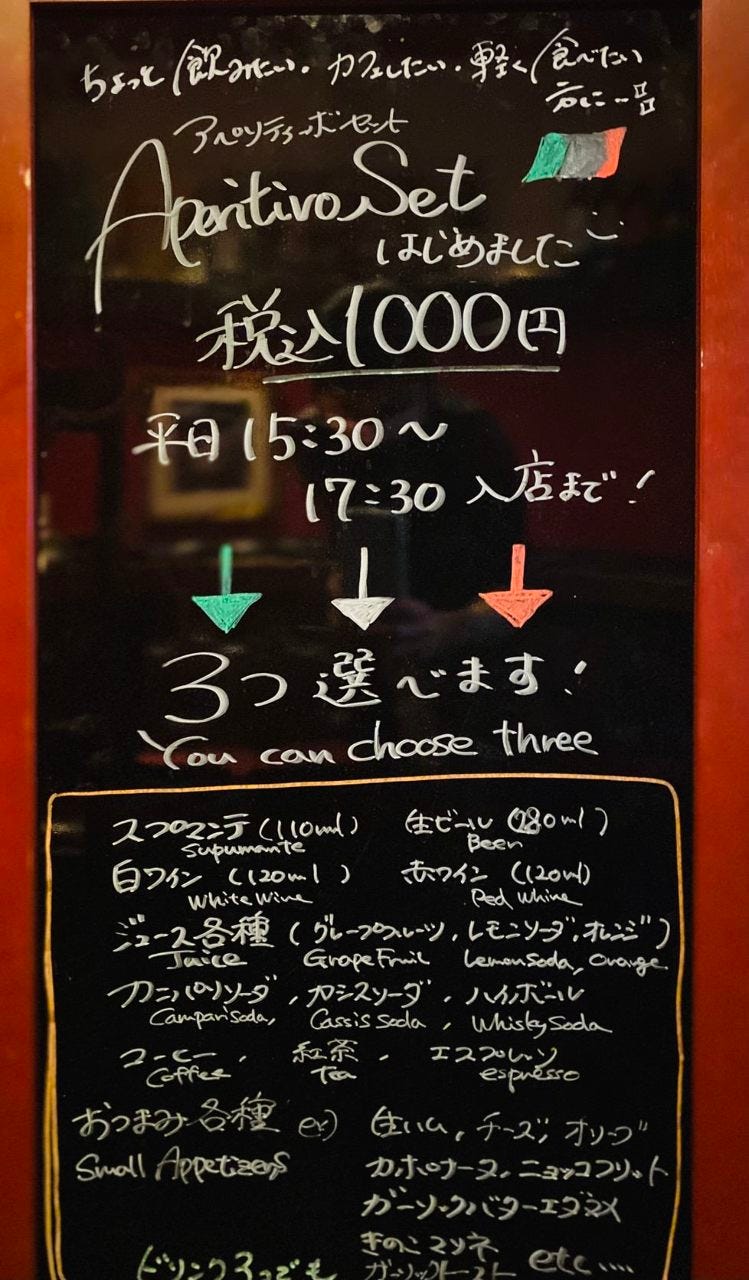 ちょっと飲みたい、カフェしたい、軽く食べたい
方に…!!
アペリティーボセット
Aperitivo Set
はじめました
税込1000円
平日 15:30〜
17:30 入店まで!
3つ選べます!
You can choose three
スプマンテ (110ml) 生ビール (280ml)
Supumante Beer
白ワイン (120ml) 赤ワイン (120ml)
White Wine Red Whine
ジュース各種 (グレープフルーツ、レモンソーダ、オレンジ)
Juice Grape Fruit Lemon Soda, Orange
カンパリソーダ、カシスソーダ、ハイボール
Campari Soda, Cassis Soda, Whisky Soda
コーヒー、紅茶、エスプレッソ
Coffee Tea espresso
おつまみ各種 ex) 生ハム、チーズ、オリーブ
Small Appetizers カポナータ、ニョッコフリット
ガーリックバターエダマメ
きのこマリネ
ガーリックトースト etc....
ドリンク3つでも